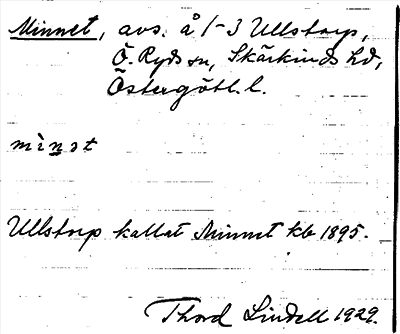 Minnet, avs. å 1-3 Ullstorp,
Ö. Ryds sn, Skärkinds hd,
Östergötl. l.
mìnət
Ullstorp kallat Minnet kb 1895.
Thord Lindell 1929.